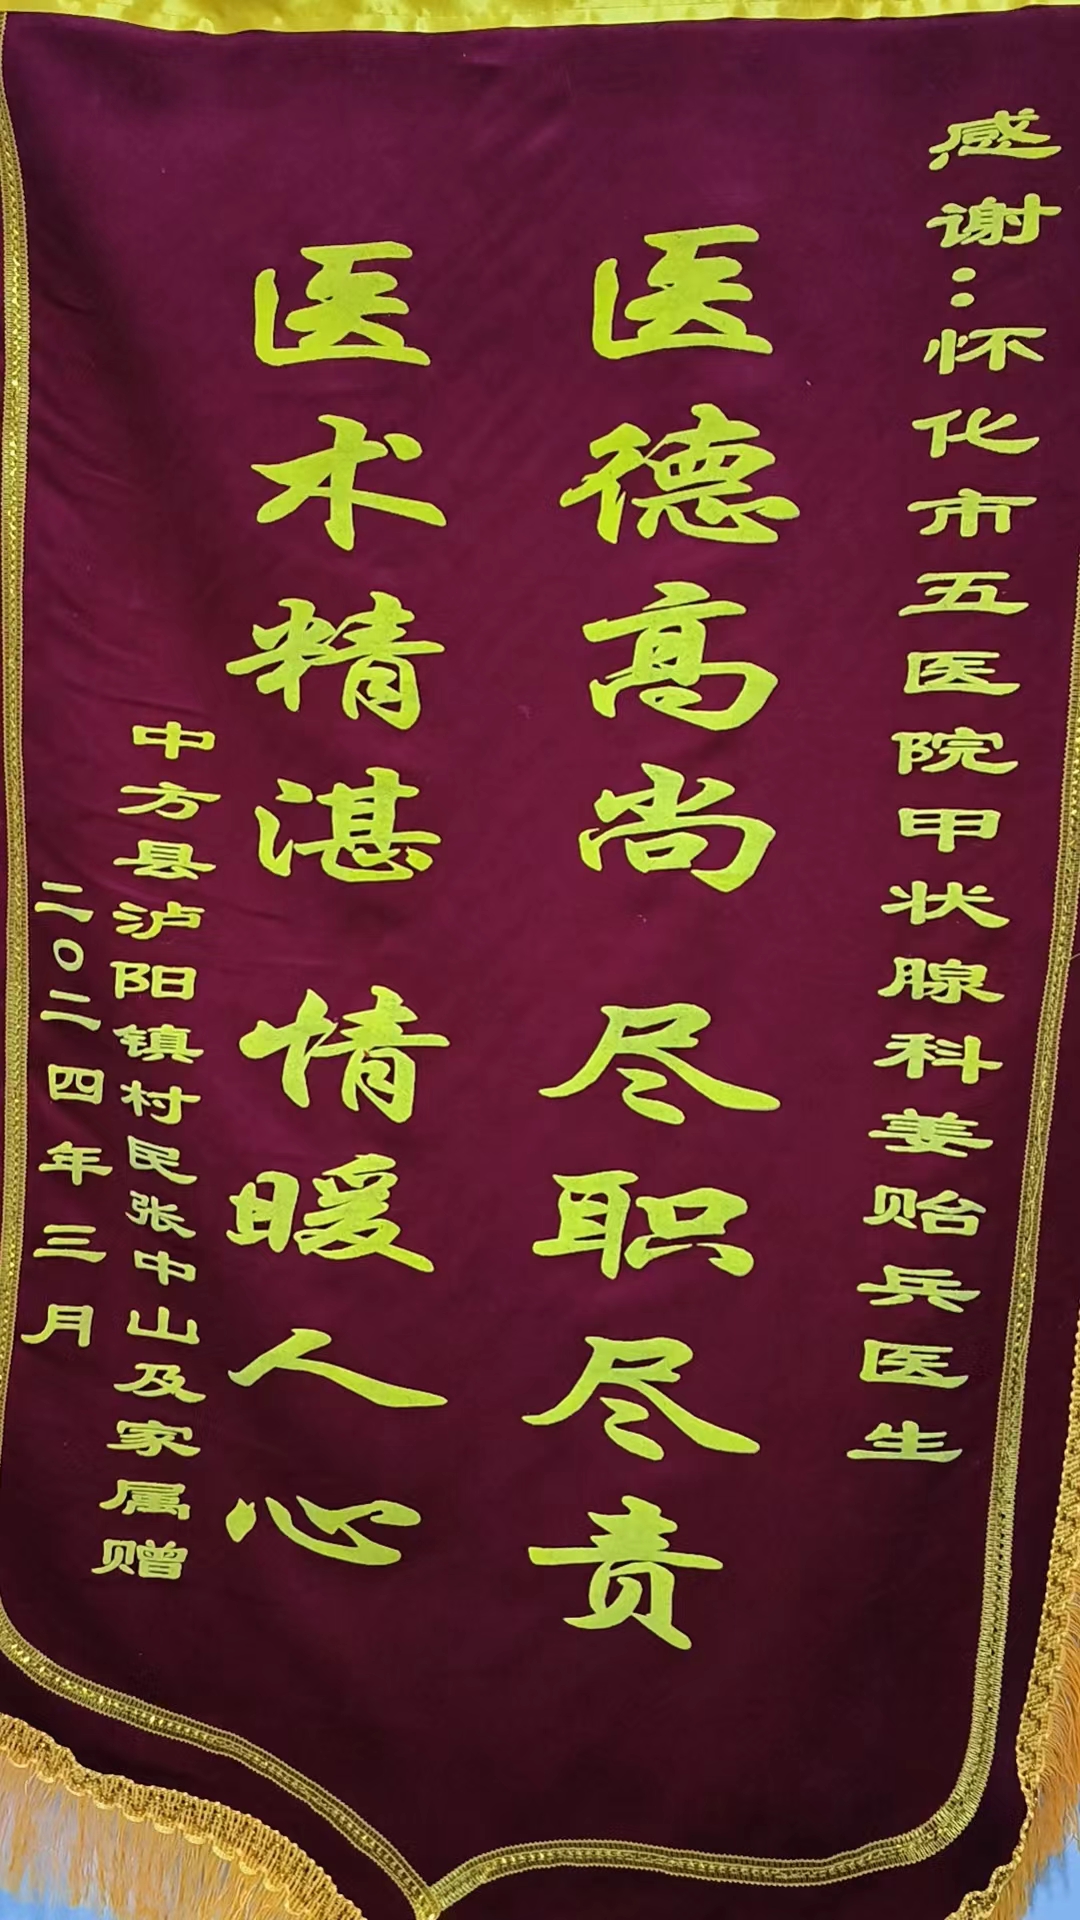 感谢：怀化市五医院甲状腺科姜贻兵医生
医德高尚 尽职尽责
医术精湛 情暖人心
中方县泸阳镇村民张中山及家属赠
二〇二四年三月